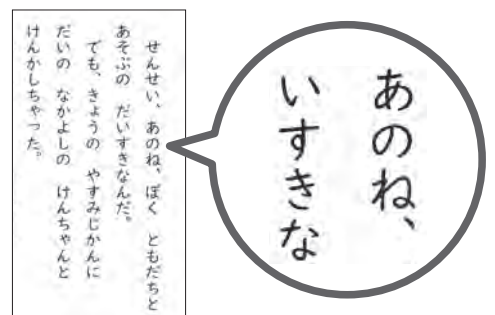 せんせい、あのね、ぼく ともだちと
あそぶの だいすきなんだ。
でも、きょうの やすみじかんに
だいの なかよしの けんちゃんと
けんかしちゃった。
あのね、
いすきな